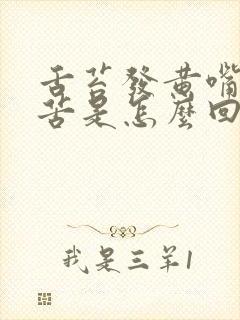 舌苔發黃嘴
苦是怎麼回
我是三羊1